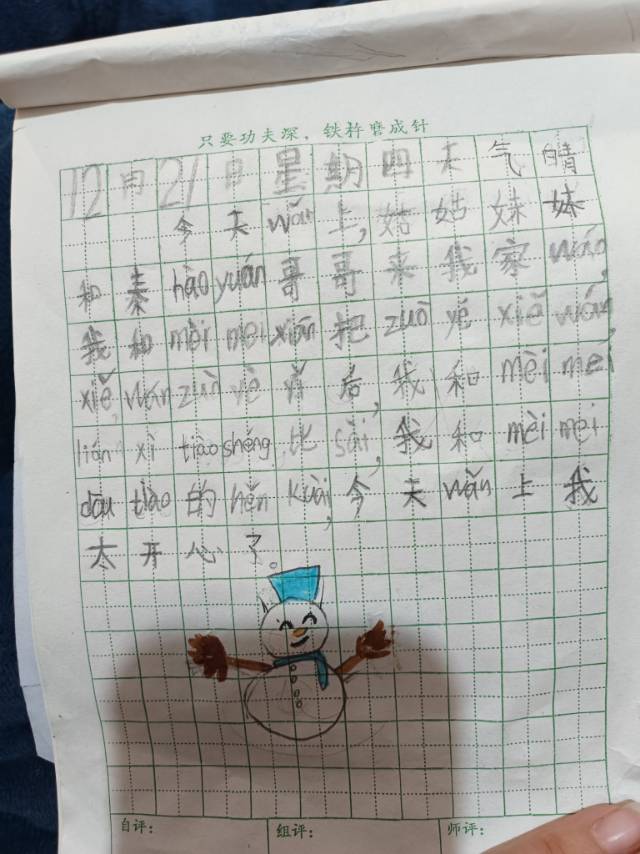 只要功夫深，铁杵磨成针
12月21日星期四天气晴
今天wǎn上，姑姑妹妹
和秦hàoyuán哥哥来我家wán，
我和mèimei xiān把zuò yè xiě wán，
xiě wán zuò yè 后，我和mèi mei
liàn xì tiào shéng 比sài，我和mèi mei
dōu tiào的hěn kuài，今天wǎn上我
太开心了。
自评： 组评： 师评：